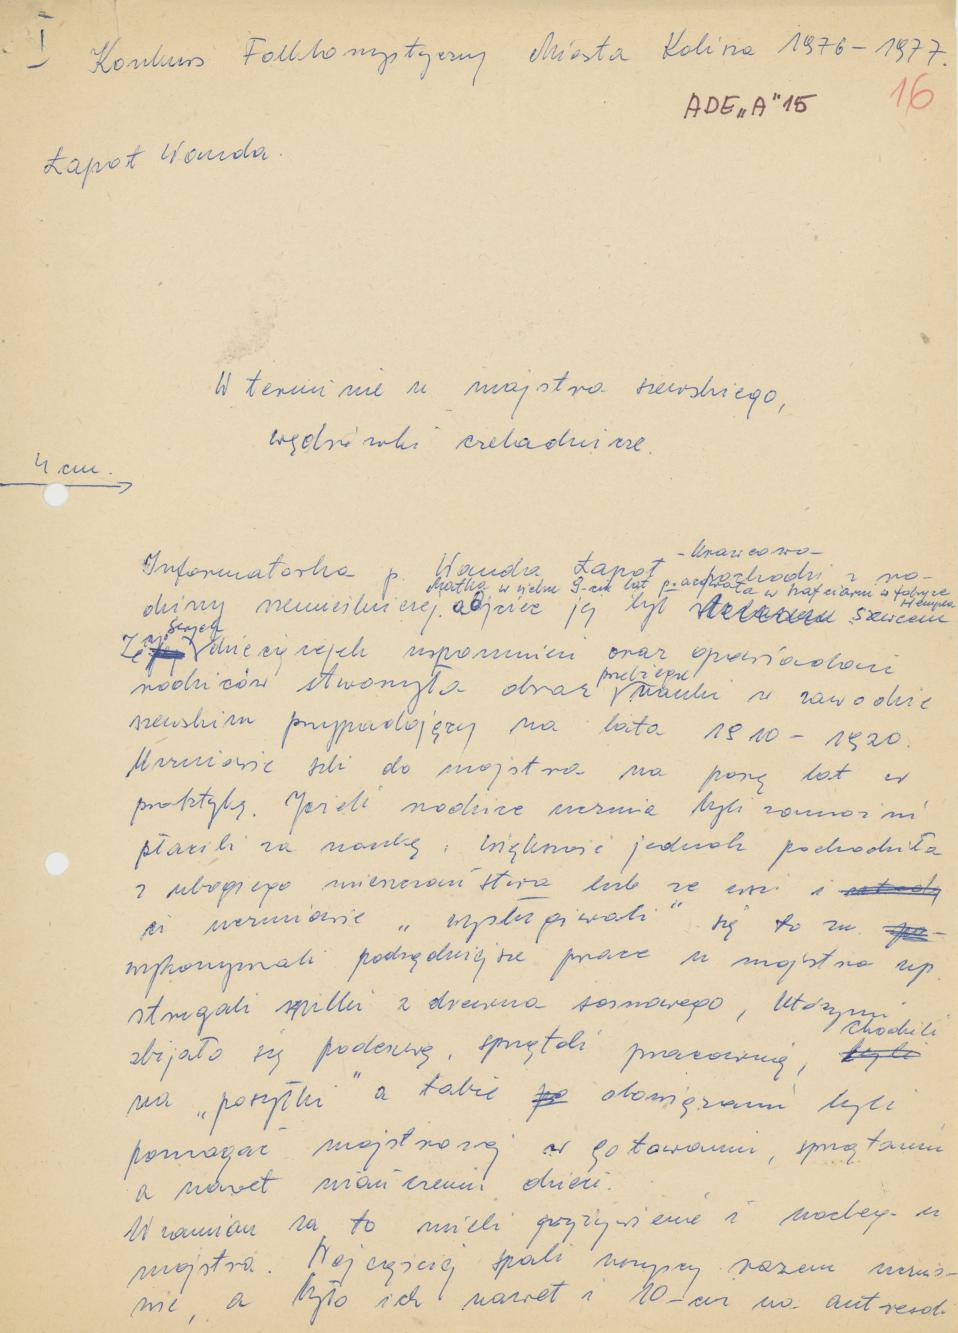 I
Konkurs Folklorystyczny Miasta Kalisza 1976-1977.
ADE„A"15
16
Łapot Wanda.
W terminie u majstra szewskiego,
wędrówki czeladnicze.
4 cm.
- krawcowa -
Informatorka p. Wanda Łapot pochodzi z ro-
Matka w wieku 9-ciu lat pracowała w hafciarni w fabryce
dziny rzemieślniczej. Ojciec jej był szewcem
swych
Ze dziecięcych wspomnień oraz opowiadań
przebiegu
rodziców stworzyła obraz nauki w zawodzie
szewskim przypadający na lata 1910-1920.
Uczniowie szli do majstra na parę lat w
praktykę. Jeżeli rodzice ucznia byli zamożni
płacili za naukę, większość jednak pochodziła
z ubogiego mieszczaństwa lub ze wsi i
ci uczniowie „wysługiwali" się to zn.
wykonywali podrzędniejsze prace u majstra np.
strugali szpilki z drewna sosnowego, którymi
chodzili
zbijało się podeszwę, sprzątali pracownię,
na „posyłki" a także obowiązani byli
pomagać majstrowej w gotowaniu, sprzątaniu
a nawet niańczeniu dzieci.
W zamian za to mieli wyżywienie i nocleg u
majstra. Najczęściej spali wszyscy razem ucznio-
wie, a było ich nawet i 10-ciu na antresoli